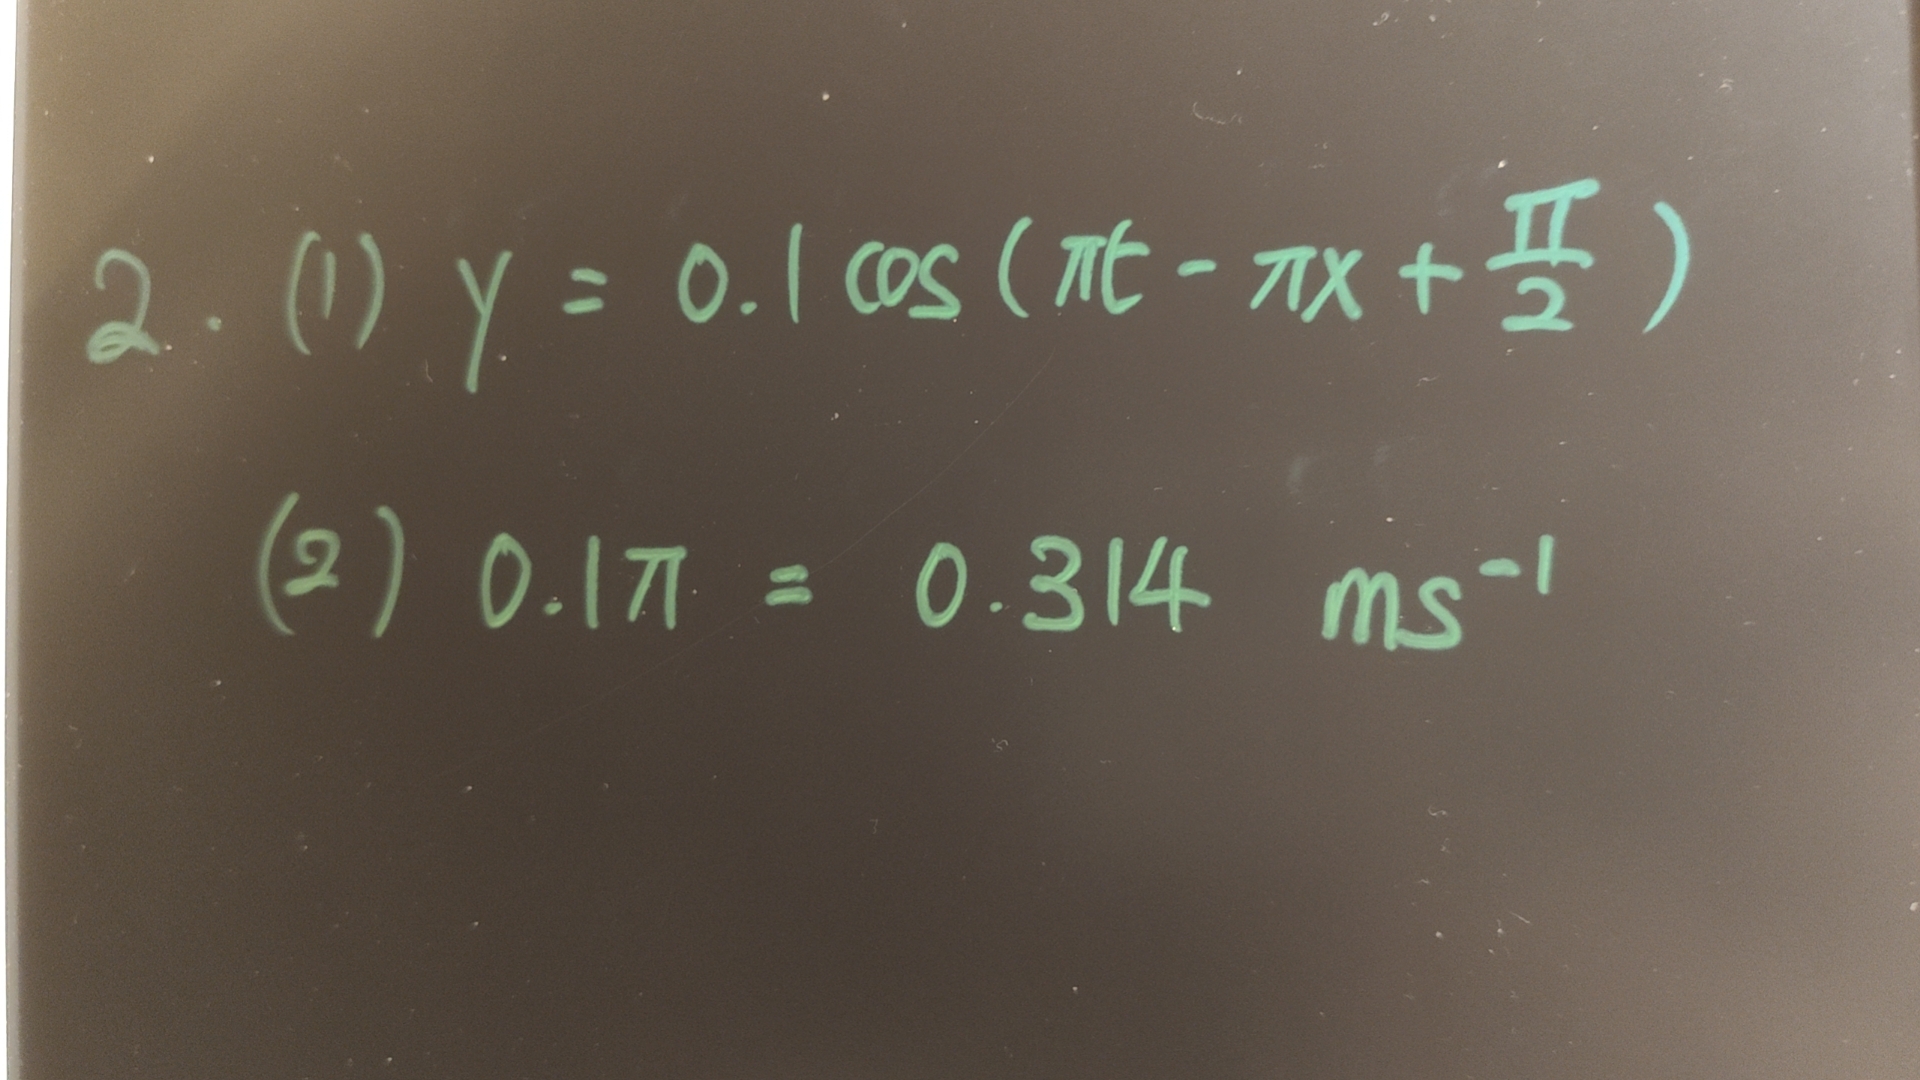 2. (1) y = 0.1 cos(πt - πx + π/2)
(2) 0.1π = 0.314 ms⁻¹